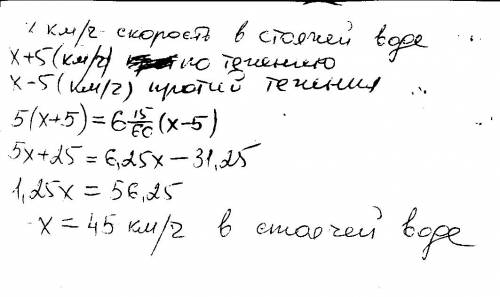 x км/ч скорость в стоячей воде
x+5 (км/ч) по течению
x-5 (км/ч) против течения
5(x+5) = 6 15/60 (x-5)
5x+25 = 6,25x - 31,25
1,25x = 56,25
x = 45 км/ч в стоячей воде